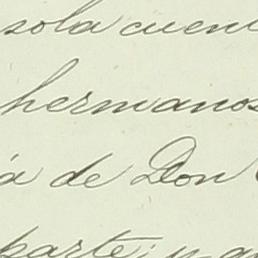 sola cuent
hermanos
a de Don
parte; y a